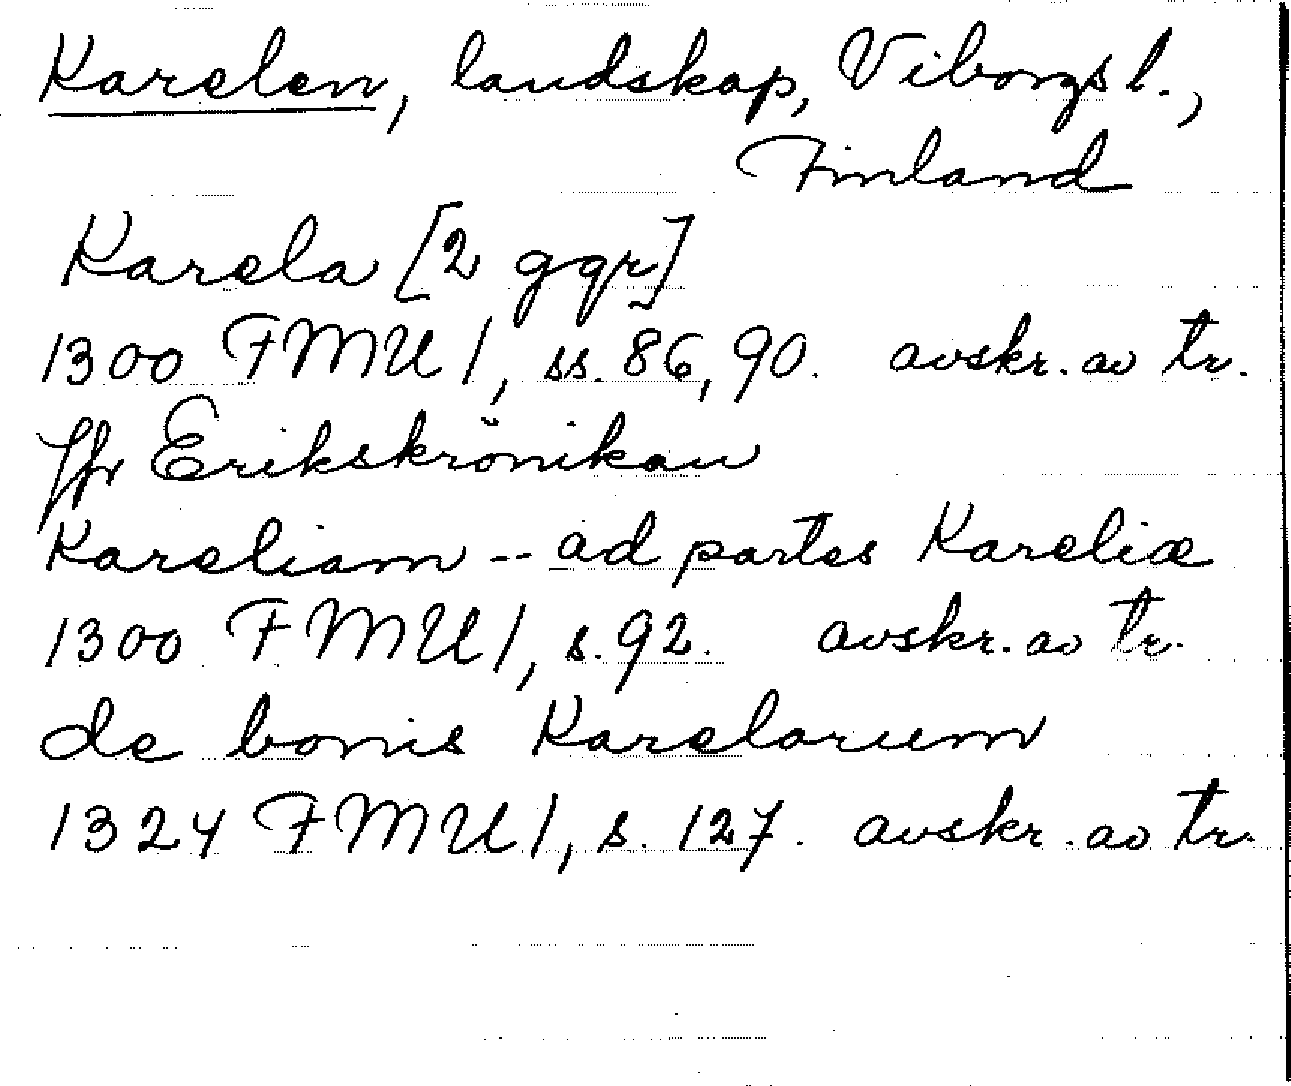 Karelen, landskap, Viborgs l.,
Finland
Karela [2 ggr]
1300 FMU 1, ss. 86, 90. avskr. av tr.
ffr Erikskrönikan
Kareliam -- ad partes Kareliæ
1300 FMU 1, s. 92. avskr. av tr.
de bonis Karelorum
1324 FMU 1, s. 127. avskr. av tr.